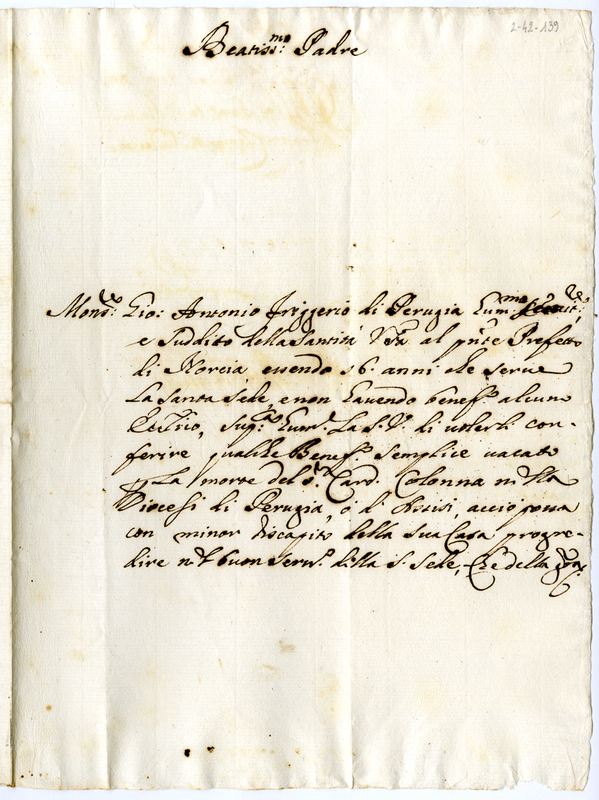 2-42-139
Beatiss:mo Padre
Mons:re Gio: Antonio Friggerio di Perugia Hum:mo
e suddito della Santità Vra al pnte Prefetto
di Norcia essendo 16. anni che serve
la Santa Sede, e non havendo benef.o alcuno
supp:ca hum.e la S. V. di volerli con-
ferire qualche Benef.o semplice vacato
La morte del s.r Card. Colonna nella
Diocesi di Perugia, ò d'Assisi, acciò possa
con minor discapito della sua Casa progre-
dire nel buon serv.o della S. Sede, Che della